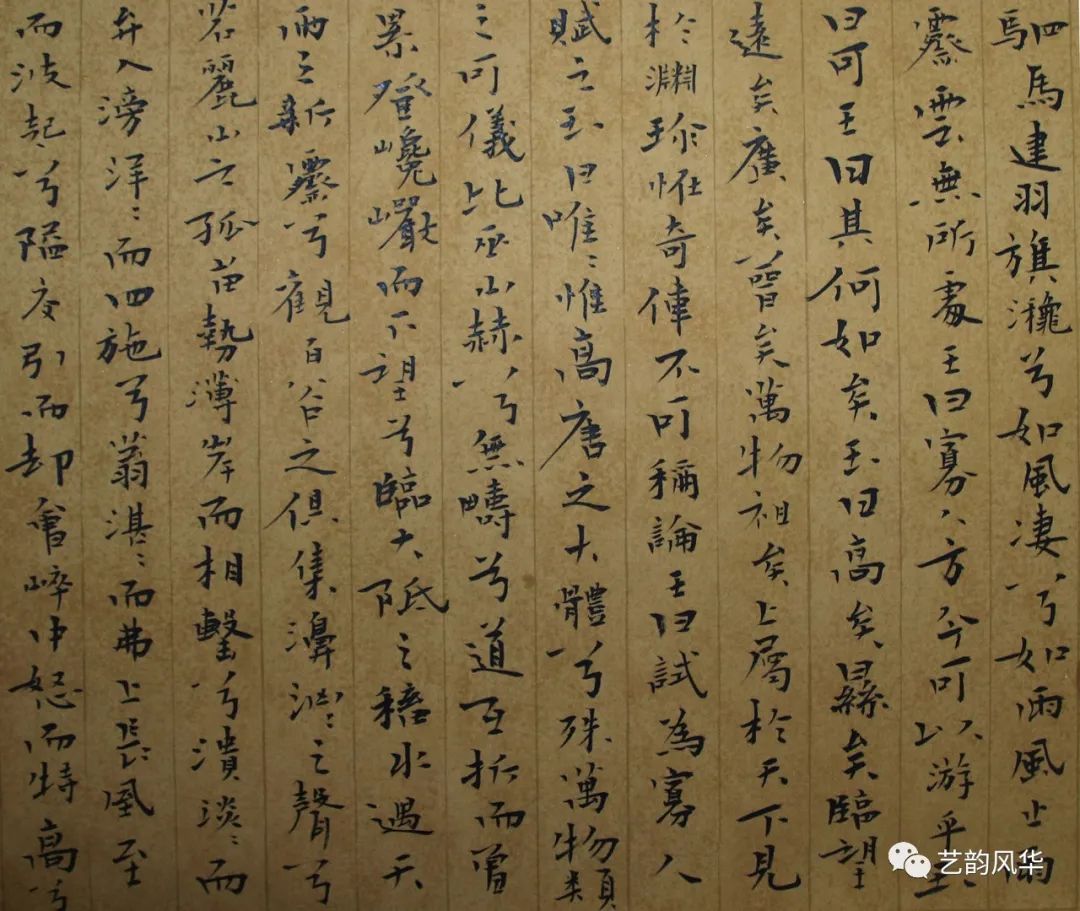 駟馬建羽旗湫兮如風凄兮如雨風止雨
霽雲無所處王曰寡人方今可以游乎玉
曰可王曰其何如矣玉曰高矣顯矣臨望
遠矣廣矣普矣萬物祖矣上屬於天下見
於淵珍怪奇偉不可稱論王曰試為寡人
賦之玉曰唯〻惟高唐之大體兮殊萬物類
之可儀比巫山赫兮無疇兮道互折而曾
累登巉巖而下望兮臨大阺之稸水遇天
雨之新霽兮觀百谷之俱集濞洶〻之聲兮
若麗山之孤畝勢薄岸而相擊兮潰淡〻而
并入滂洋〻而四施兮蓊湛〻而弗止長風至
而波起兮隘交引而却會崪中怒而特高兮
艺韵风华